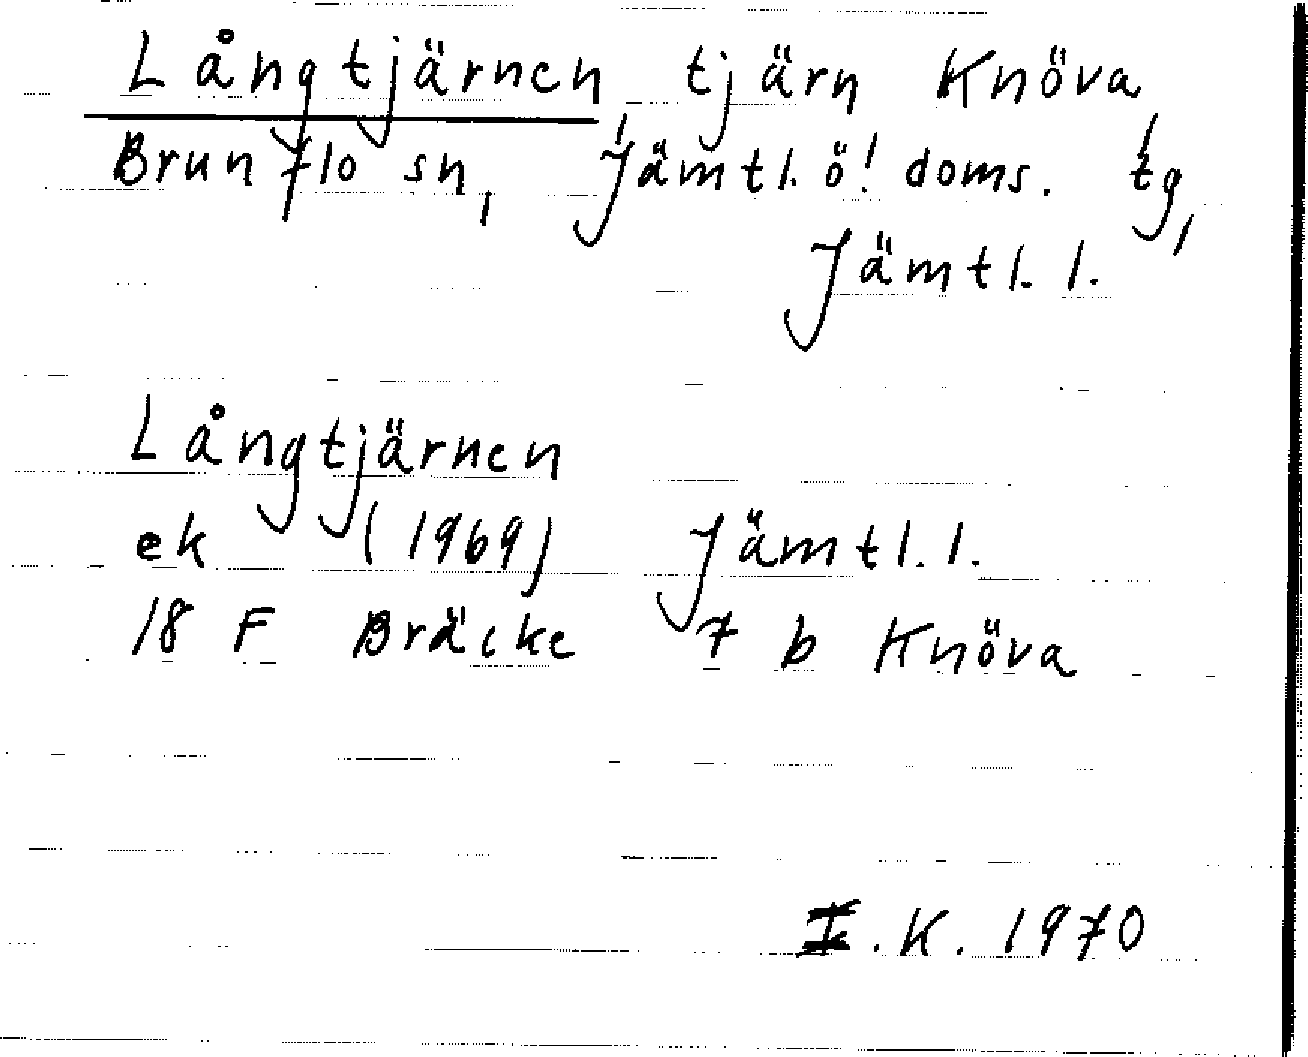 Långtjärnen, tjärn Knöva,
Brunflo sn, Jämtl. ö! doms. tg,
Jämtl. l.
Långtjärnen
ek (1969) Jämtl. l.
18 F Bräcke 7 b Knöva
I. K. 1970